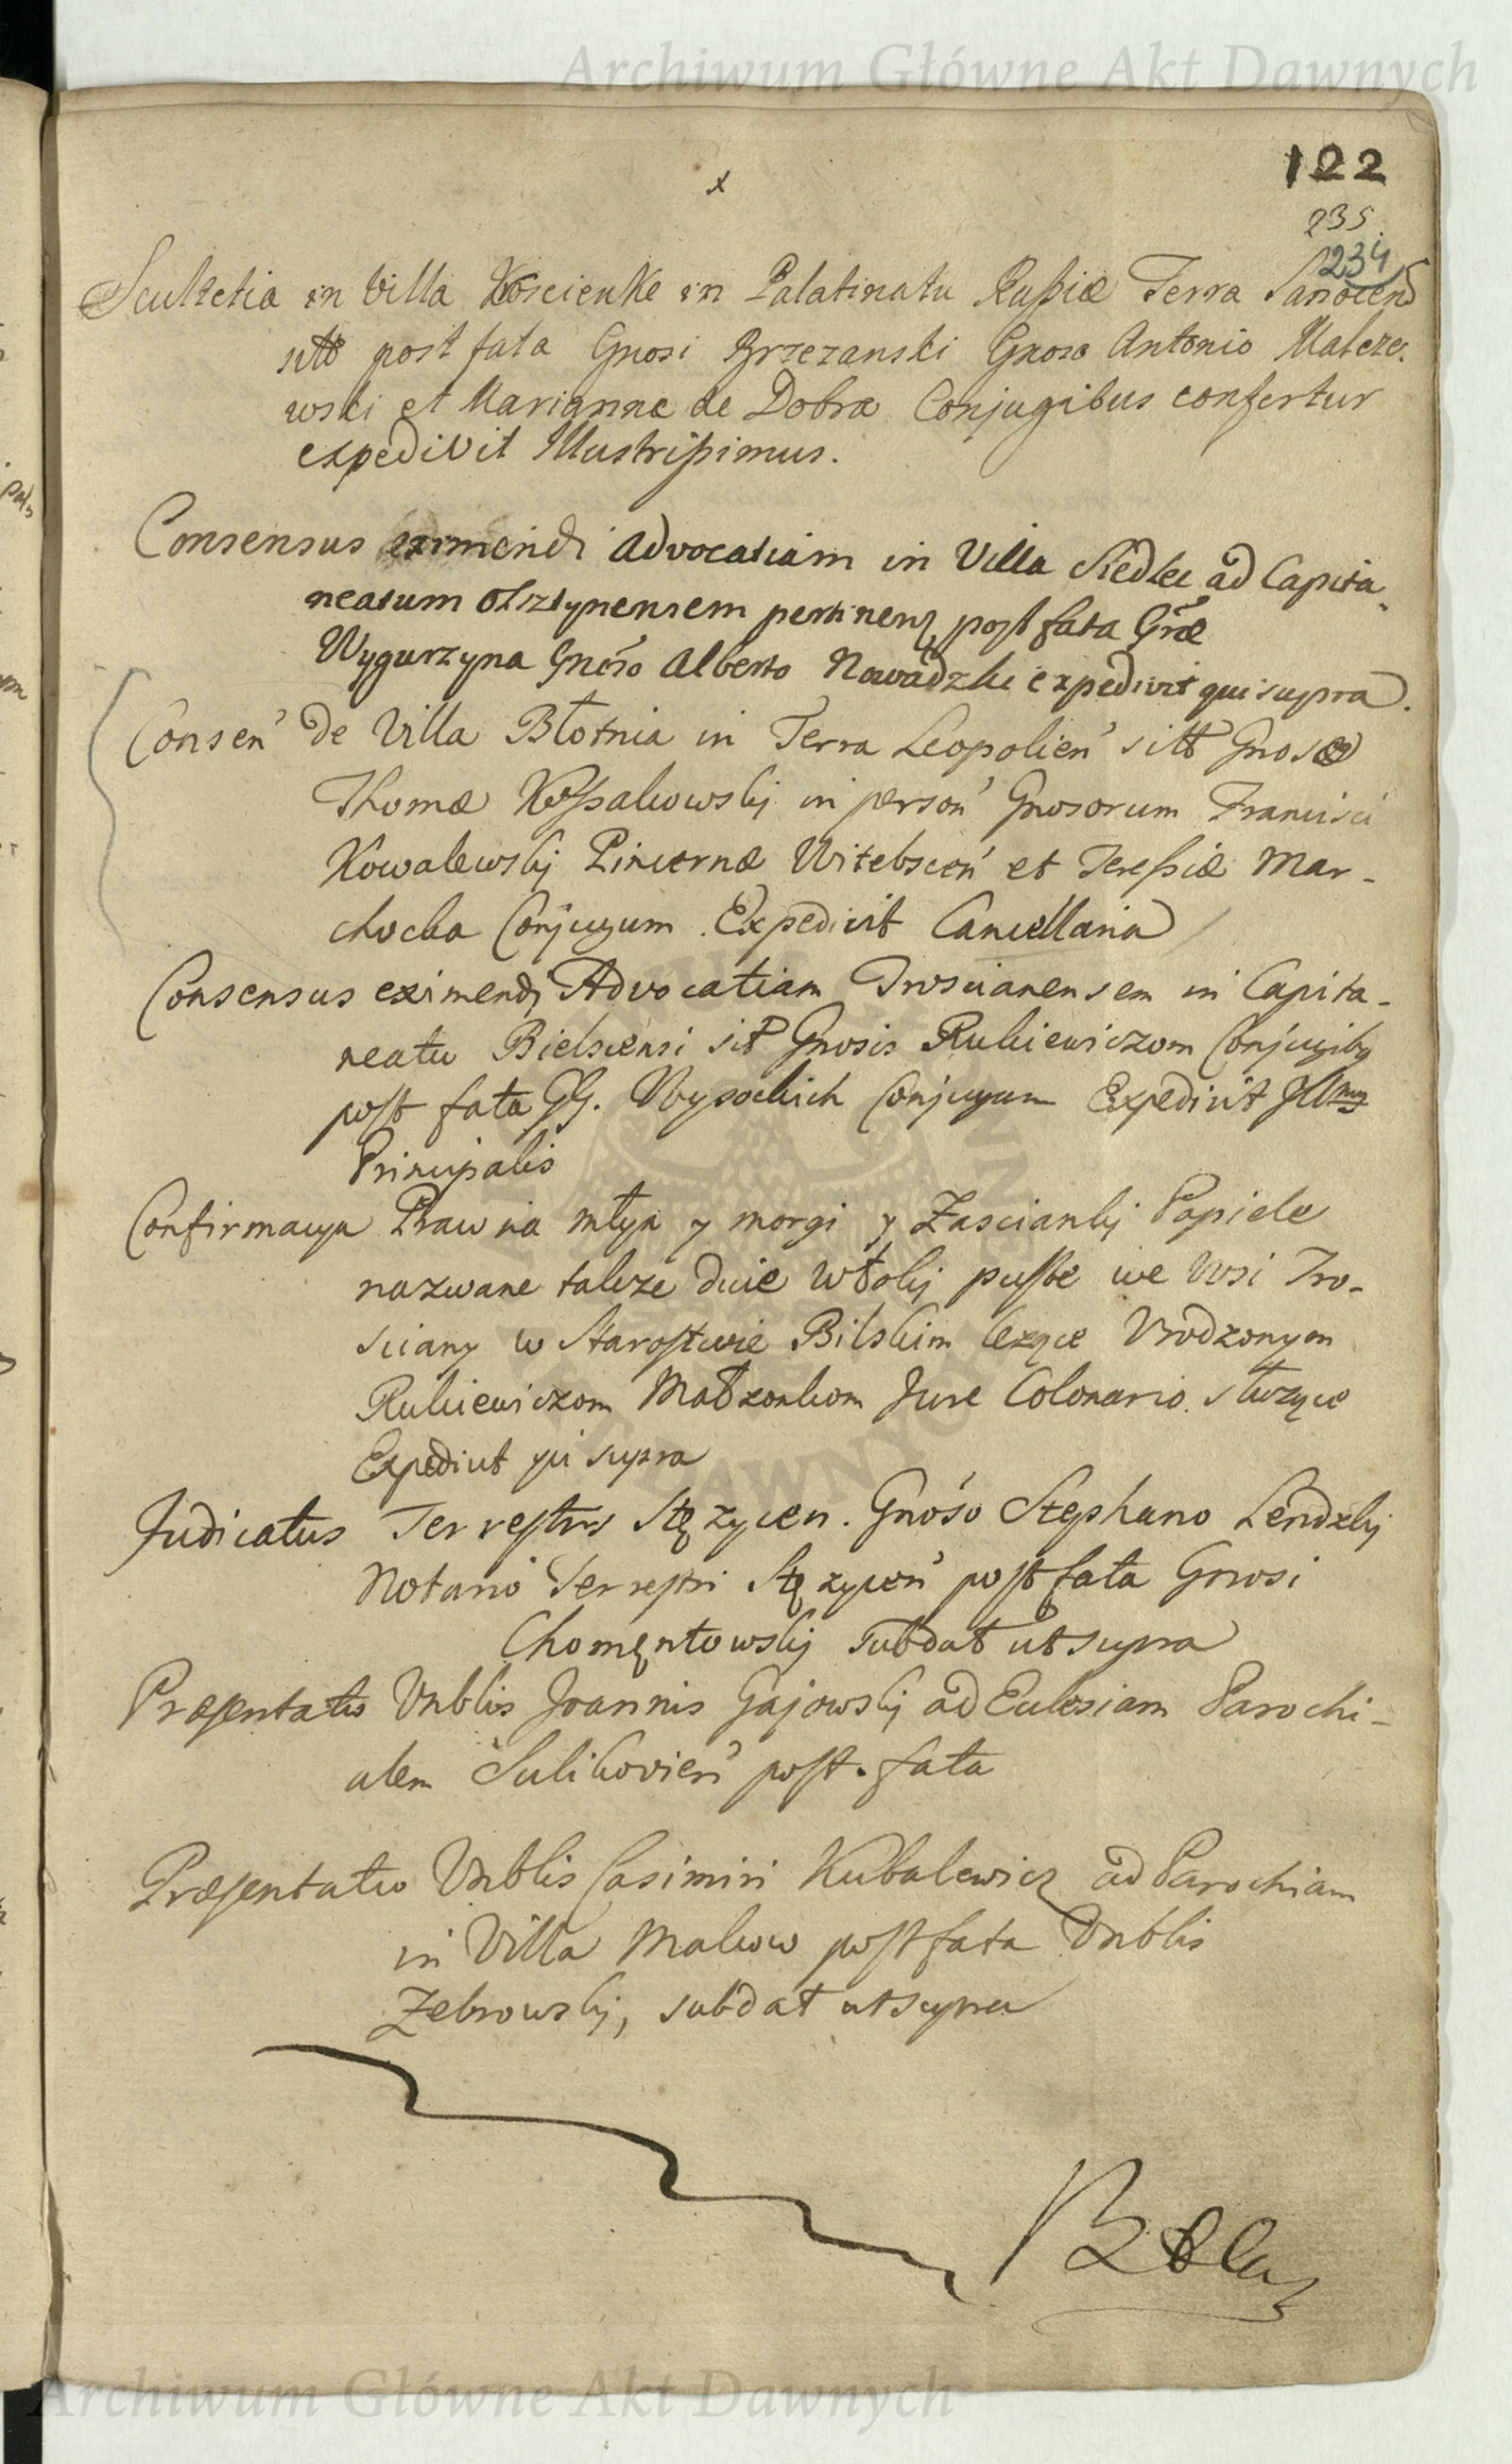 Archiwum Główne Akt Dawnych
122
x
235
234
Scultetia in Villa Koscienke in Palatinatu Rußiæ Terra Sanocen
sitt post fata Gnosi Brzezanski Gnoso Antonio Malcze-
wski et Marianne de Dobra Conjugibus confertur
expedivit Illustrißimus.
Consensus eximendi Advocatiam in Villa Siedlec ad Capita-
neatum Olsztynensem pertinen post fata Gñæ
Wygurzyna Gnoso Alberto Nowadzki expedivit qui supra.
Consen' de Villa Błotnia in Terra Leopolien' sitt Gnosæ
Thomæ Koßakowskj in person' Gnosorum Francisci
Kowalewskj Pincernæ Witebscen' et Tereßiæ Mar-
chocka Conjugum. Expedivit Cancellaria
Consensus eximendj Advocatiam Troscianensem in Capita-
neatu Bielscensi sit Gnosis Rukiewiczom Conjugibq
post fata GG. Wysockich Conjugum Expedivit Jllmus
Principalis
Confirmacya Praw na młyn y morgi y Zasciankj Popiele
nazwane takze dwie Włokj puste we Wsi Tro-
sciany w Starostwie Bilskim lezące Vrodzonym
Rukiewiczom Małzonkom Jure Colonario słuzące
Expedivit qui supra
Judicatus Terrestris Stęzycen. Gnoso Stephano Lendzkj
Notario Terrestri Stęzycen' post fata Gnosi
Chomętowskj subdat ut supra
Præsentatio Vnblis Joannis Gajowskj ad Ecclesiam Parochi-
alem Sulikovien' post. fata
Præsentatio Vnblis Casimiri Kubalewicz ad Parochiam
in Villa Makow post fata Vnblis
Zebrowskj, subdat ut supra
Archiwum Główne Akt Dawnych